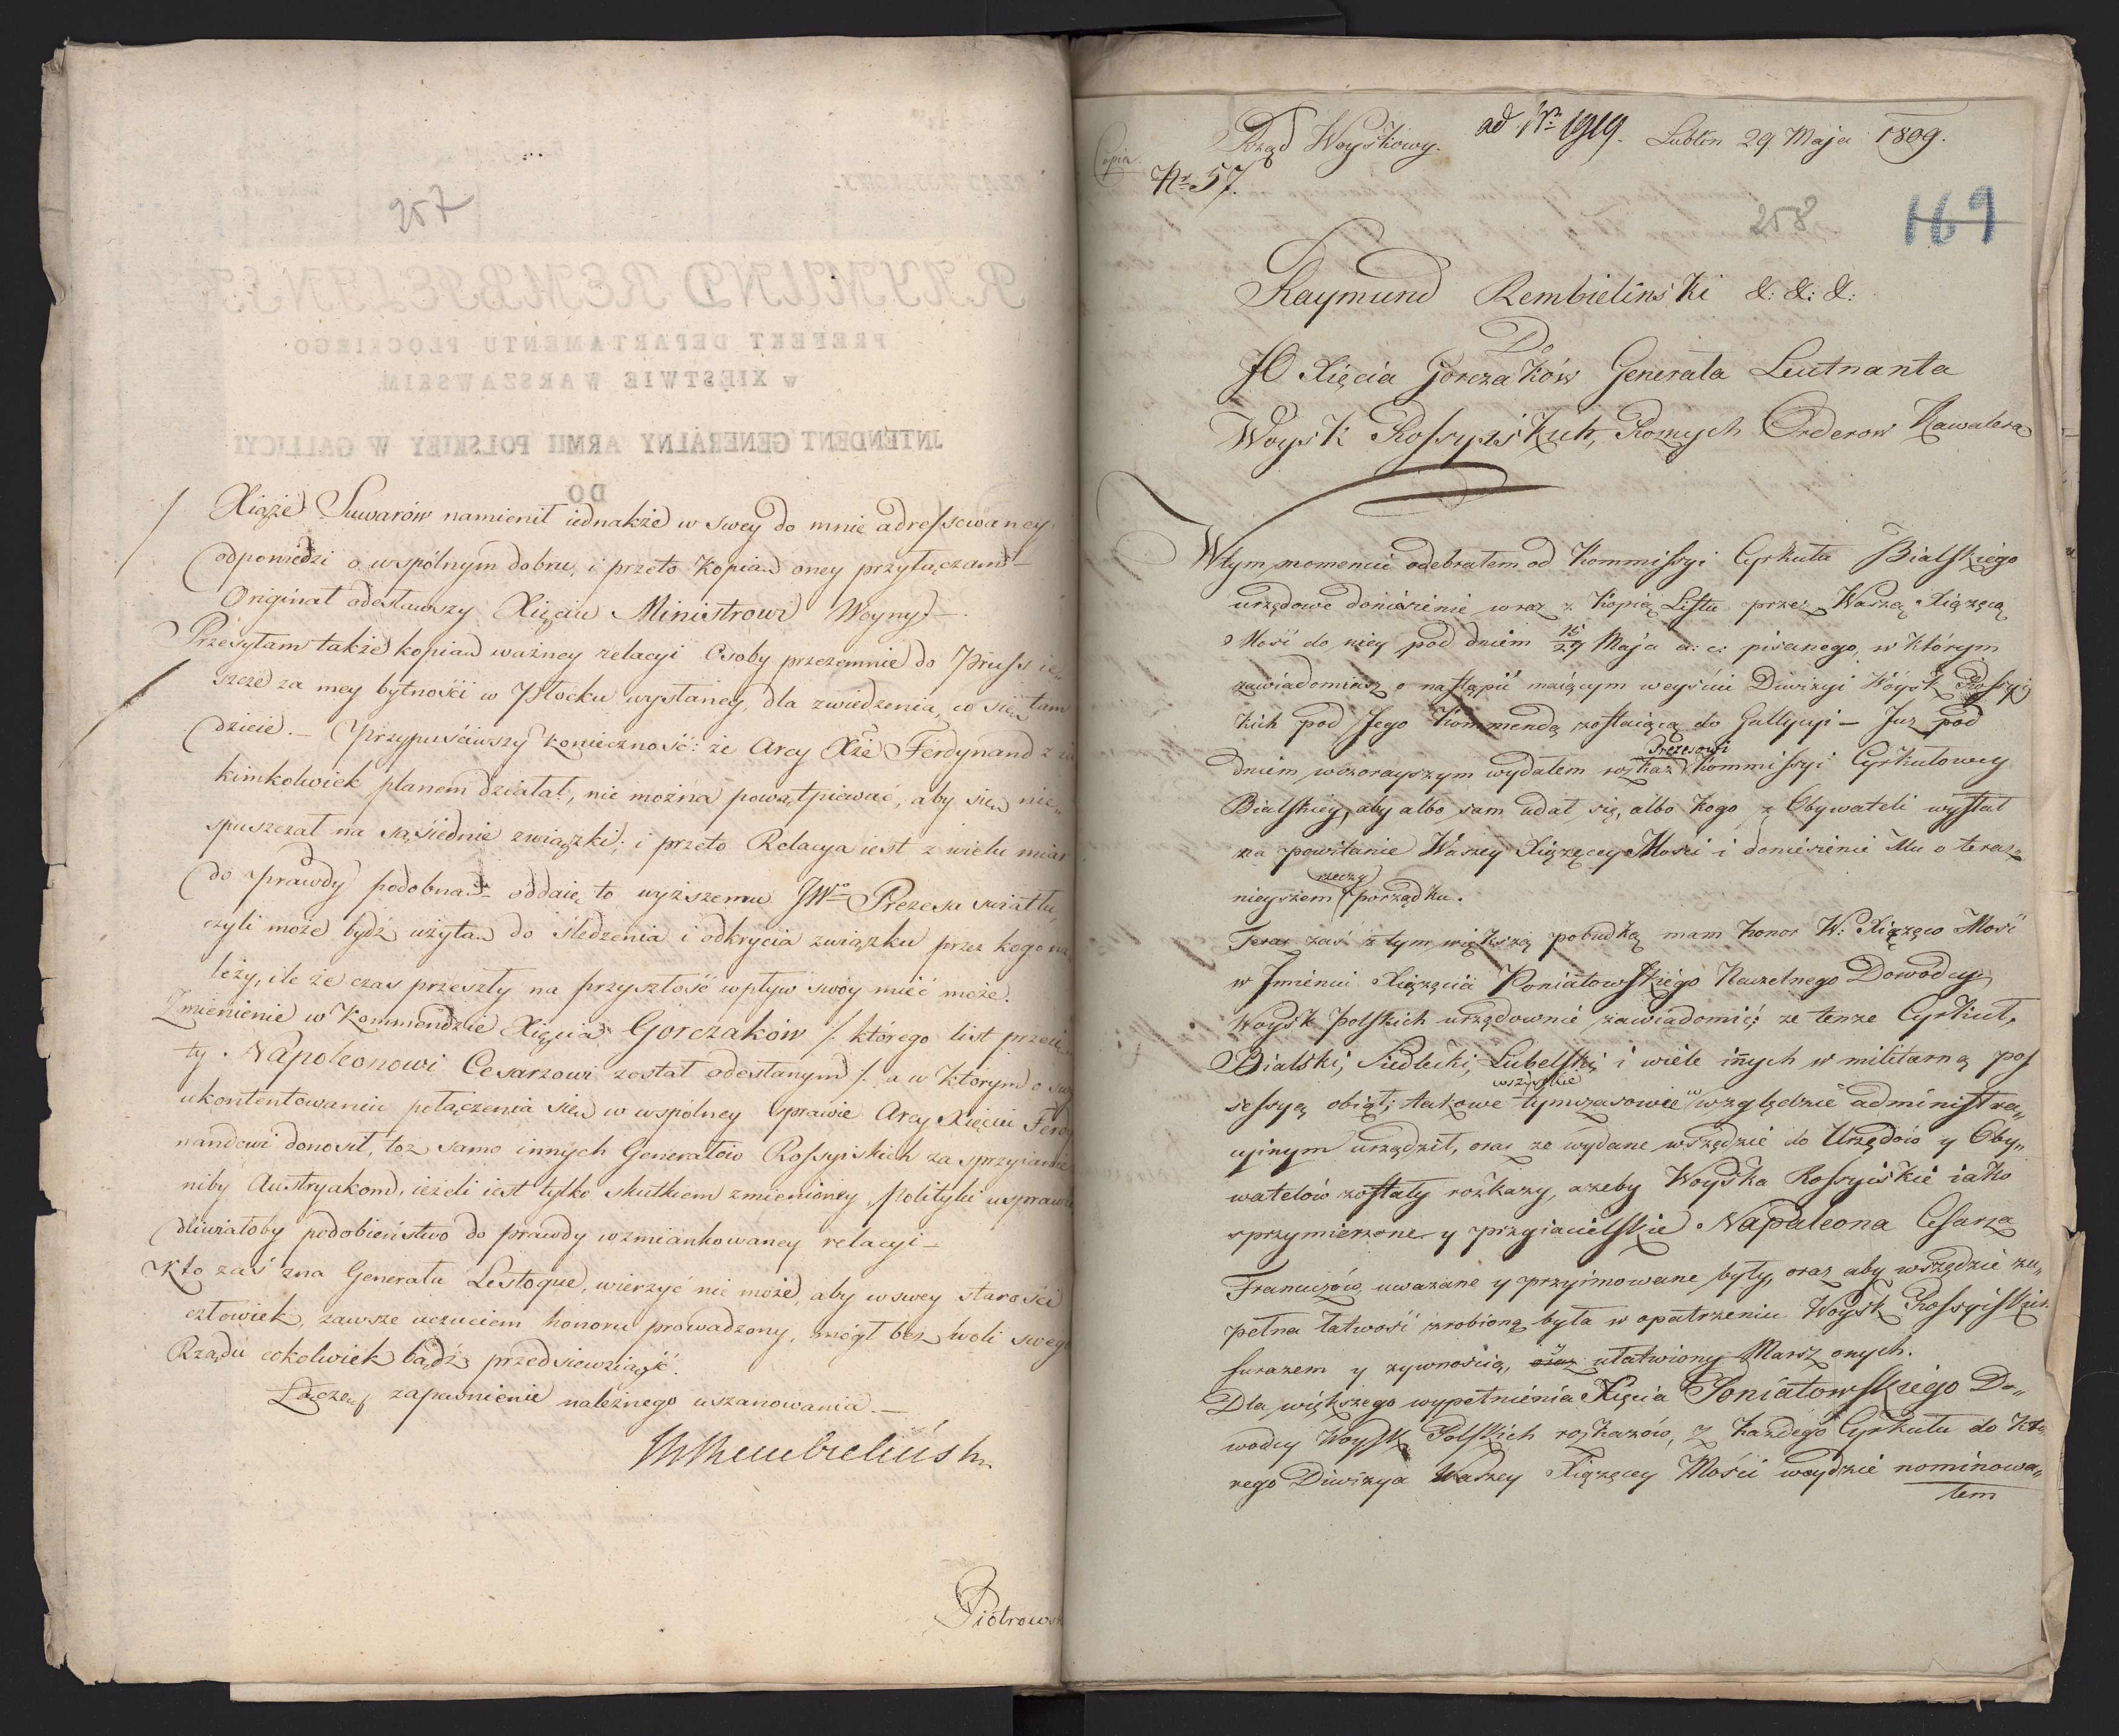 257
Xiąże Suwarów namienił iednakże w swey do mnie adressowaney
odpowiedzi o wspólnym dobru, i przeto kopią oney przyłączam –
Originał odesławszy Xięciu Ministrowi Woyny –.
Przesyłam także kopią ważney relacyi Osoby przezemnie do Pruss ie„
szcze za mey bytności w Płocku wysłaney, dla zwiedzenia, co się tam
dzieie. – Przypuściwszy konieczność: że Arcy Xże Ferdynand z ia
kimkolwiek planem działał, nie można powątpiewać, aby się nie„
spuszczał na sąsiednie związki; i przeto Relacya iest z wielu miar
do prawdy podobna – oddaię to wyższemu JWo Prezesa światłu,
czyli może bydź użyta do śledzenia i odkrycia związku przez kogo na
leży, ile że czas przeszły na przyszłość wpływ swóy mieć może.
Zmienienie w Kommendzie Xięcia Gorczaków /: którego list przeię
ty Napoleonowi Cesarzowi został odesłanym /: a w którym o swy
ukontentowaniu połączenia się w wspólney sprawie Arcy Xięciu Ferdy
nandowi donosił, toż samo innych Generałów Rossyiskich za sprzyianie
niby Austryakom, ieżeli iest tylko skutkiem zmienioney Polityki usprawie
dliwiałoby podobieństwo do prawdy wzmiankowaney relacyi –
Kto zaś zna Generała Lestoque, wierzyć nie może, aby w swey starości
człowiek, zawsze uczuciem honoru prowadzony, mógł bez woli swego
Rządu cokolwiek bądź przedsiewziąść.
Łączę zapewnienie należnego uszanowania –
RRembielińsk
Piotrows
Copia.
Rząd Woyskowy. ad Nr 1919. Lublin 29 Maja 1809.
Nr 57.
258 169
Raymund Rembielinski &: &: &:
Do
JO Xięcia Gorczaków Generała Leutnanta
Woysk Rossyiskich, Rożnych Orderow Kawalera
W tym momencie odebrałem od Kommissyi Cyrkułu Bialskiego
urzędowe doniesienie wraz z Kopią Listu przez Waszą Xiążęcą
Mość do niey pod dniem 15/27 Maja a: c: pisanego, w którym
zawiadomiasz o nastąpić maiącym weyściu Diwizyi Woysk Rossyis
kich pod Jego Kommendą zostaiącą do Gallycyi – Juz pod
dniem wczorayszym wydałem rozkaz Prezesowi Kommissyi Cyrkułowey
Bialskiey, aby albo sam udał się, albo kogo z Obywateli wysłał
na powitanie Waszey Xiążęcey Mosci i doniesienie Mu o teraz„
nieyszem rzeczy porządku.
Teraz zaś z tym większą pobudką mam honor W: Xiążęco Mość
w Jmieniu Xiążęcia Poniatowskiego Naczelnego Dowodcy
Woysk Polskich urzędownie zawiadomić; że tenże Cyrkuł,
Bialski, Siedlecki, Lubelski i wiele iñych w militarną pos
sessyą obiął; takowe wszystkie tymczasowie w względzie administra„
cyinym urządził, oraz ze wydane wszędzie do Urzędów y Oby„
watelów zostały rozkazy, azeby Woyska Rossyiskie iako
sprzymierzone y przyiacielskie Napoleona Cesarza
Francuzów, uwazane y przyimowane były, oraz aby wszędzie zu„
pełna łatwość zrobioną była w opatrzeniu Woysk Rossyiskich
furazem y zywnością, oraz y ułatwiony Marsz onych.
Dla większego wypełnienia Xięcia Poniatowskiego Do„
wodcy Woysk Polskich rozkazów, z każdego Cyrkułu do Któ
rego Diwizya Waszey Xiążęcey Mości weydzie nominowa„
łem